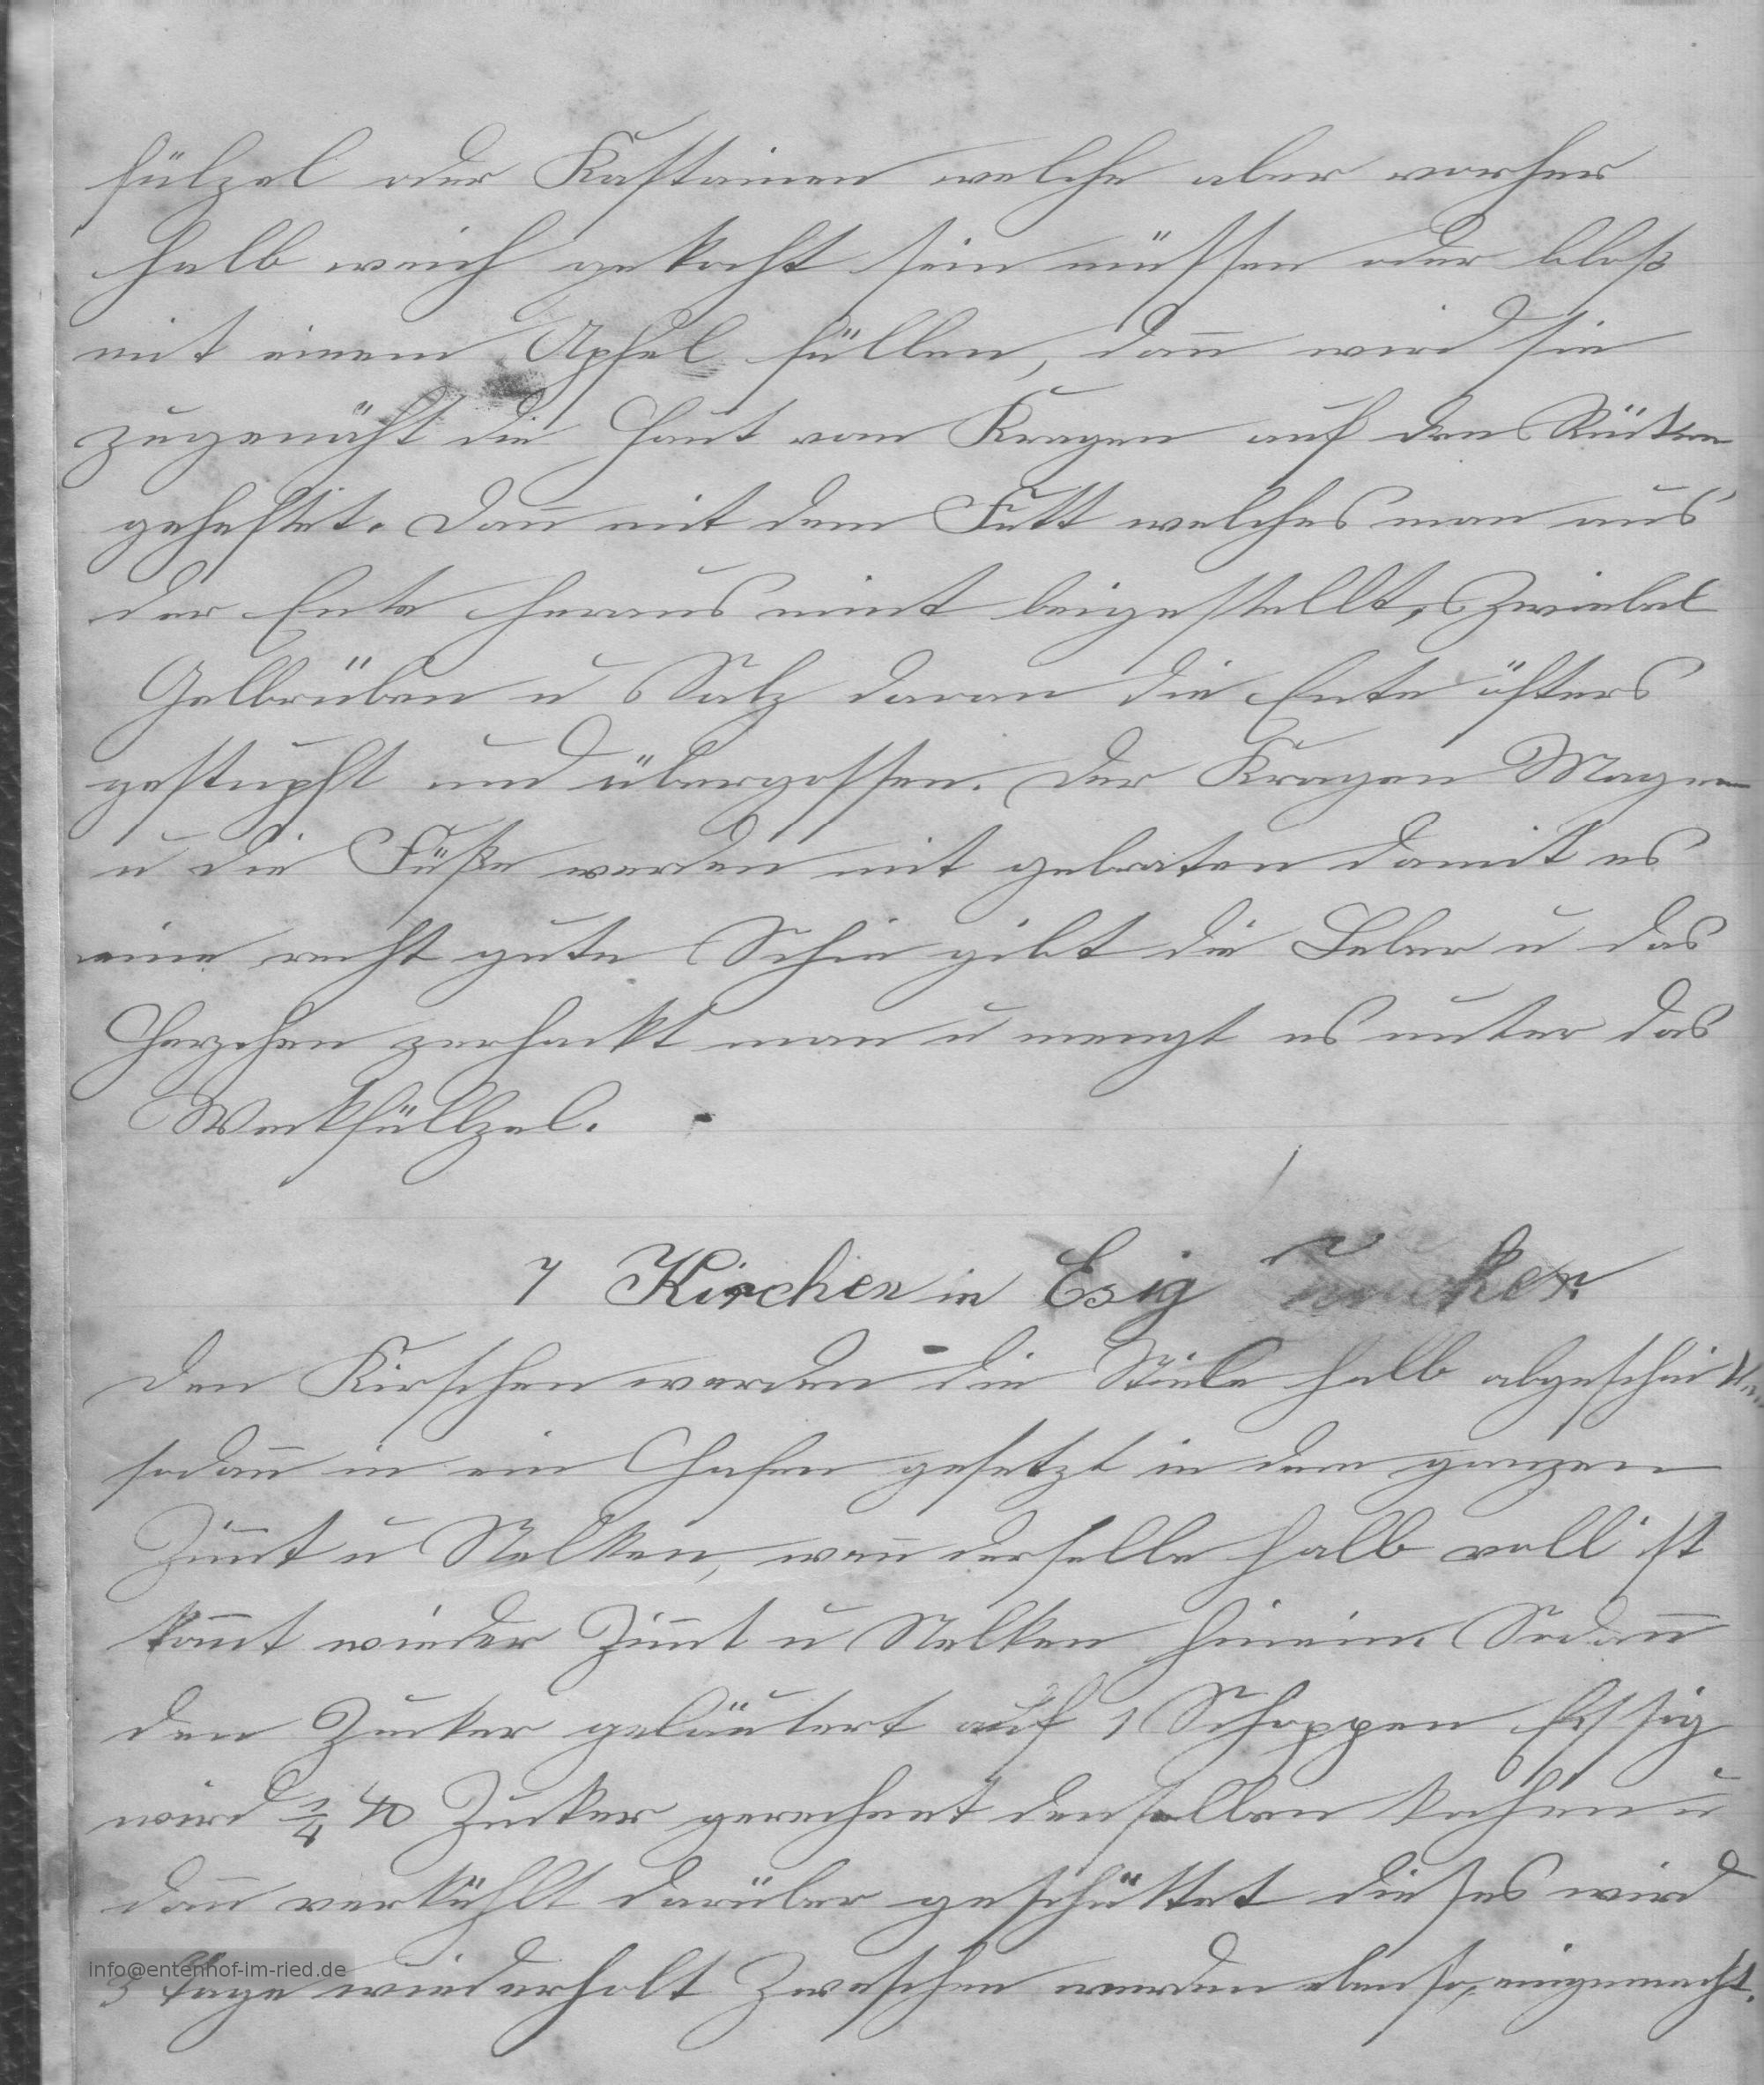 fülzel oder Kastainen welche aber vorher
halb weich gekocht sein müssen oder blos
mit einem Apfel füllen, dan̄ wird sie
zugenäht die Haut vom Kragen auf den Rücken
geheftet. Dan̄ mit dem Fett welches man aus
der Ente heraus nimt beigestellt, Zwiebel
Gelbrüben u Salz daran die Ente öfters
gestupft und übergossen. Der Kragen Magen
u die Füße werden mit gebraten damit es
eine recht gute Schü gibt die Leber u das
Herzchen zerhackt man u mengt es unter das
Weckfüllzel.
7 Kirchen in Esig Zucker.
Den Kirschen werden die Stiele halb abgeschnitten
sodan̄ in ein Hafen gesetzt in dem ganzen
Zim̄t u Nelken, wan̄ derselbe halb voll ist
kom̄t wieder Zim̄t u Nelken hinein. Sodan̄
den Zucker geläutert auf 1 Schoppen Essig
wird ¼ ℔ Zucker gerechnet denselben kochen u
dan̄ verkühlt darüber geschüttet dieses wird
3 Tage wiederholt Zweschen werden ebenso, eingemacht.
info@entenhof-im-ried.de